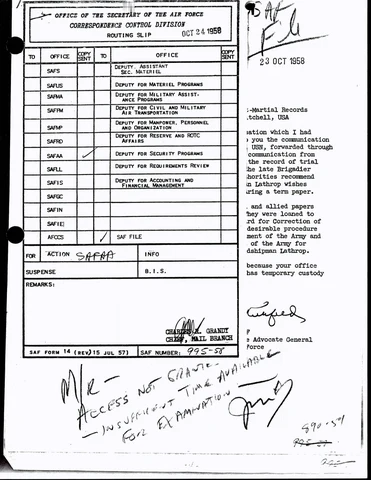 OFFICE OF THE SECRETARY OF THE AIR FORCE
CORRESPONDENCE CONTROL DIVISION
ROUTING SLIP
OCT 24 1958
TO OFFICE COPY SENT TO OFFICE COPY SENT
SAFS DEPUTY, ASSISTANT SEC. MATERIEL
SAFUS DEPUTY FOR MATERIEL PROGRAMS
SAFMA DEPUTY FOR MILITARY ASSIST-
ANCE PROGRAMS
SAFFM DEPUTY FOR CIVIL AND MILITARY
AIR TRANSPORTATION
SAFMP DEPUTY FOR MANPOWER, PERSONNEL
AND ORGANIZATION
SAFRD DEPUTY FOR RESERVE AND ROTC
AFFAIRS
SAFAA ✓ DEPUTY FOR SECURITY PROGRAMS
SAFLL DEPUTY FOR REQUIREMENTS REVIEW
SAFIS DEPUTY FOR ACCOUNTING AND
FINANCIAL MANAGEMENT
SAFGC
SAFIN
SAFIE
AFCCS ✓ SAF FILE
FOR ACTION SAFAA INFO
SUSPENSE B.I.S.
REMARKS:
GRANDT
CHIEF, MAIL BRANCH
SAF FORM 14 (REV) 15 JUL 57) SAF NUMBER: 995-58
M/R-
ACCESS NOT GRANTED
- INSUFFICIENT TIME AVAILABLE
FOR EXAMINATION
SAF
File
23 OCT 1958
-Martial Records
tchell, USA
ation which I had
you the communication
USN, forwarded through
communication from
the record of trial
he late Brigadier
horities recommend
n Lathrop wishes
ring a term paper.
and allied papers
hey were loaned to
rd for Correction of
desirable procedure
ment of the Army and
of the Army for
dshipman Lathrop.
because your office
has temporary custody
e Advocate General
Force
890-58
995-58